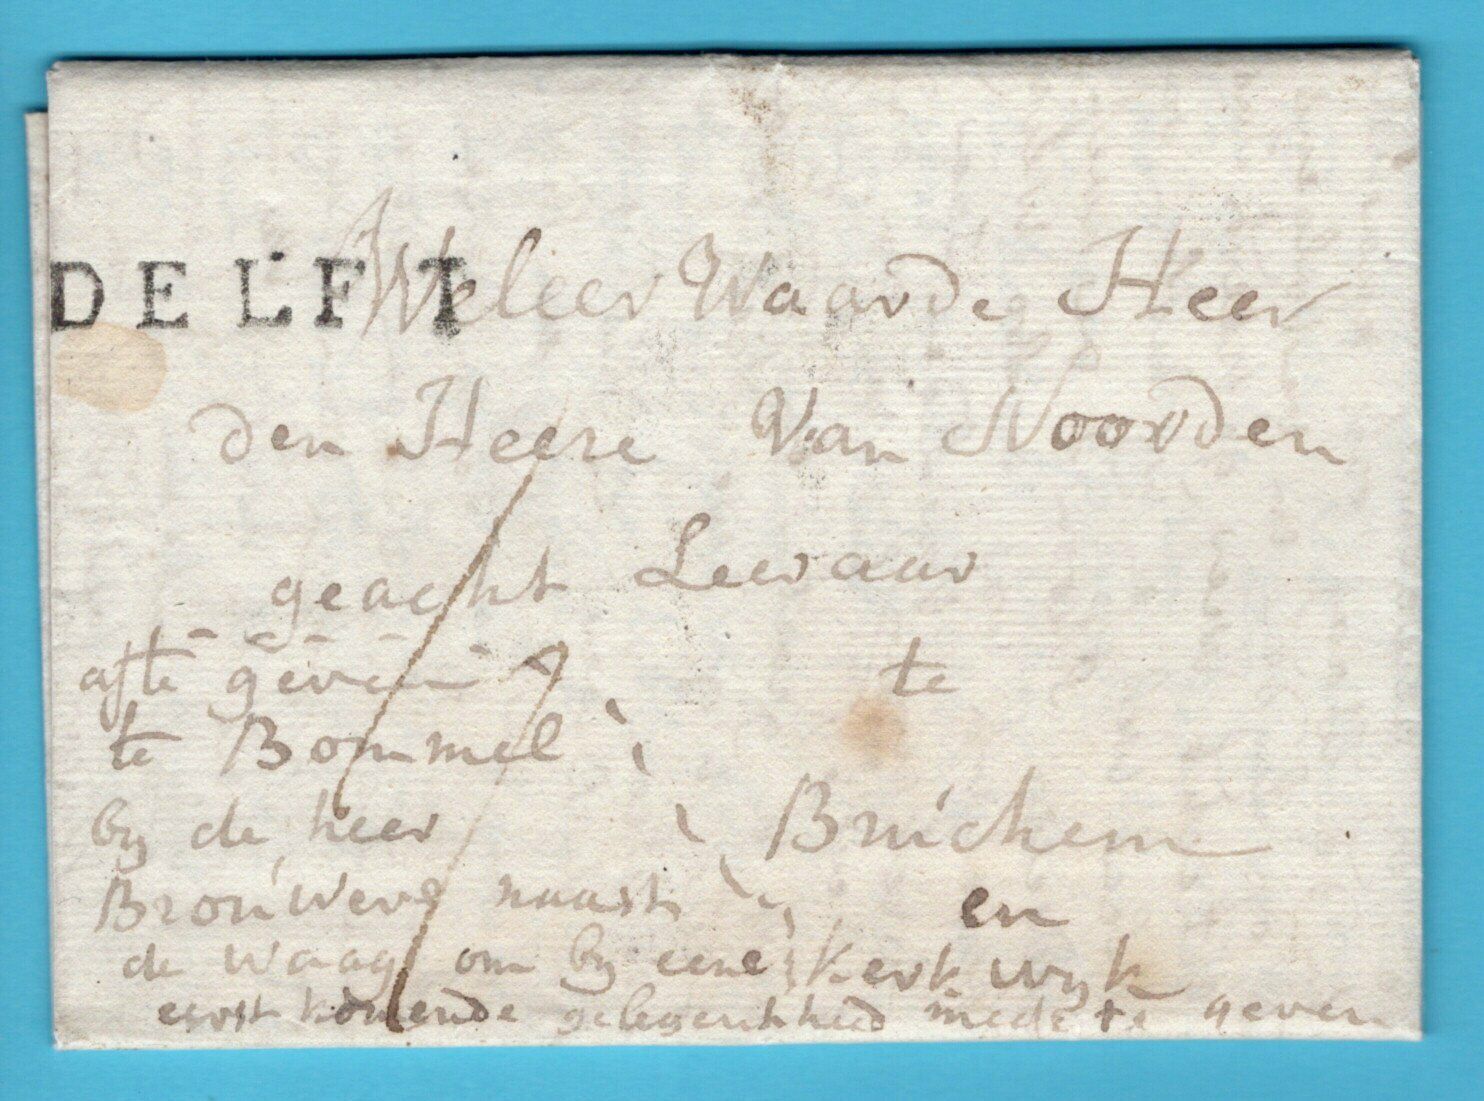 DELFT
Weleer Waarde Heer
den Heere Van Noorden
geacht Leeraar
te
Bruchem
en
Kerk wyk
afte geven
te Bommel
by de heer
Brouwers naast
de waag om by eene
eerst komende gelegentheid mede te geven